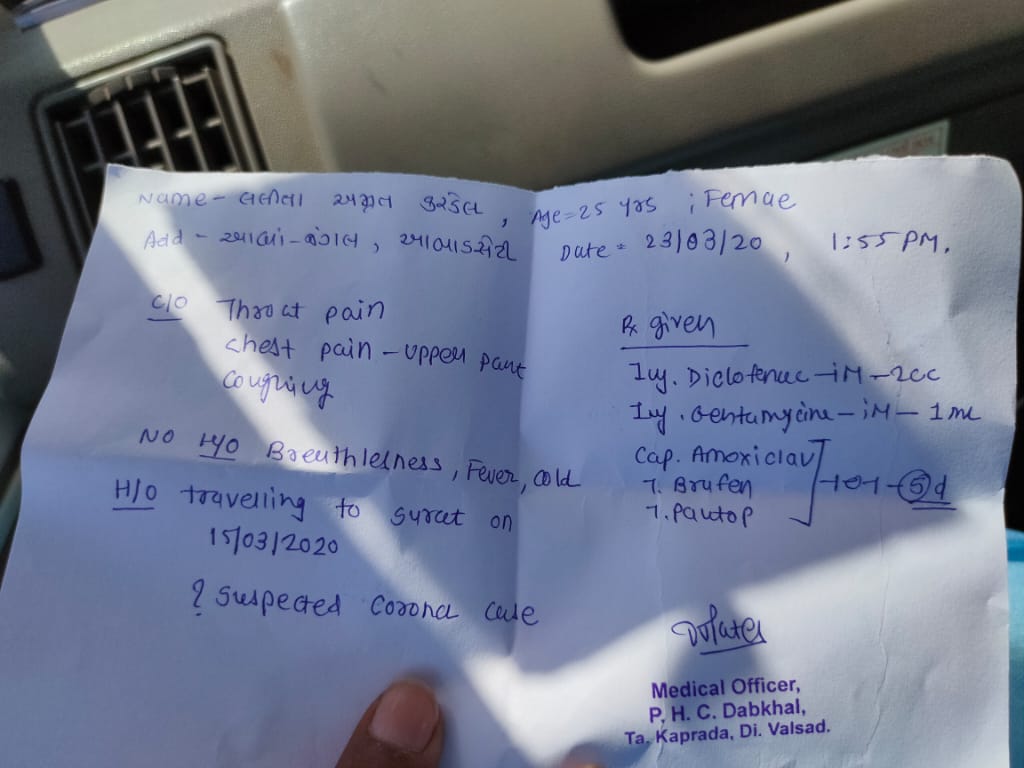 Name - લલીતા , Age = 25 yrs ; Femae
Add - , Date = 23/03/20 , 1:55 PM.
C/O Throat pain
chest pain - upper part
Coughing
NO H/O Breathlesness, Fever, cold
H/O travelling to surat on
15/03/2020
? suspected corona case
Rx given
Inj. Diclofenac - iM - 2cc
Inj. Gentamycine - iM - 1 ml
Cap. Amoxiclav
T. Brufen 1-0-1 - 5 d
T. Pantop
Medical Officer,
P. H. C. Dabkhal,
Ta. Kaprada, Di. Valsad.